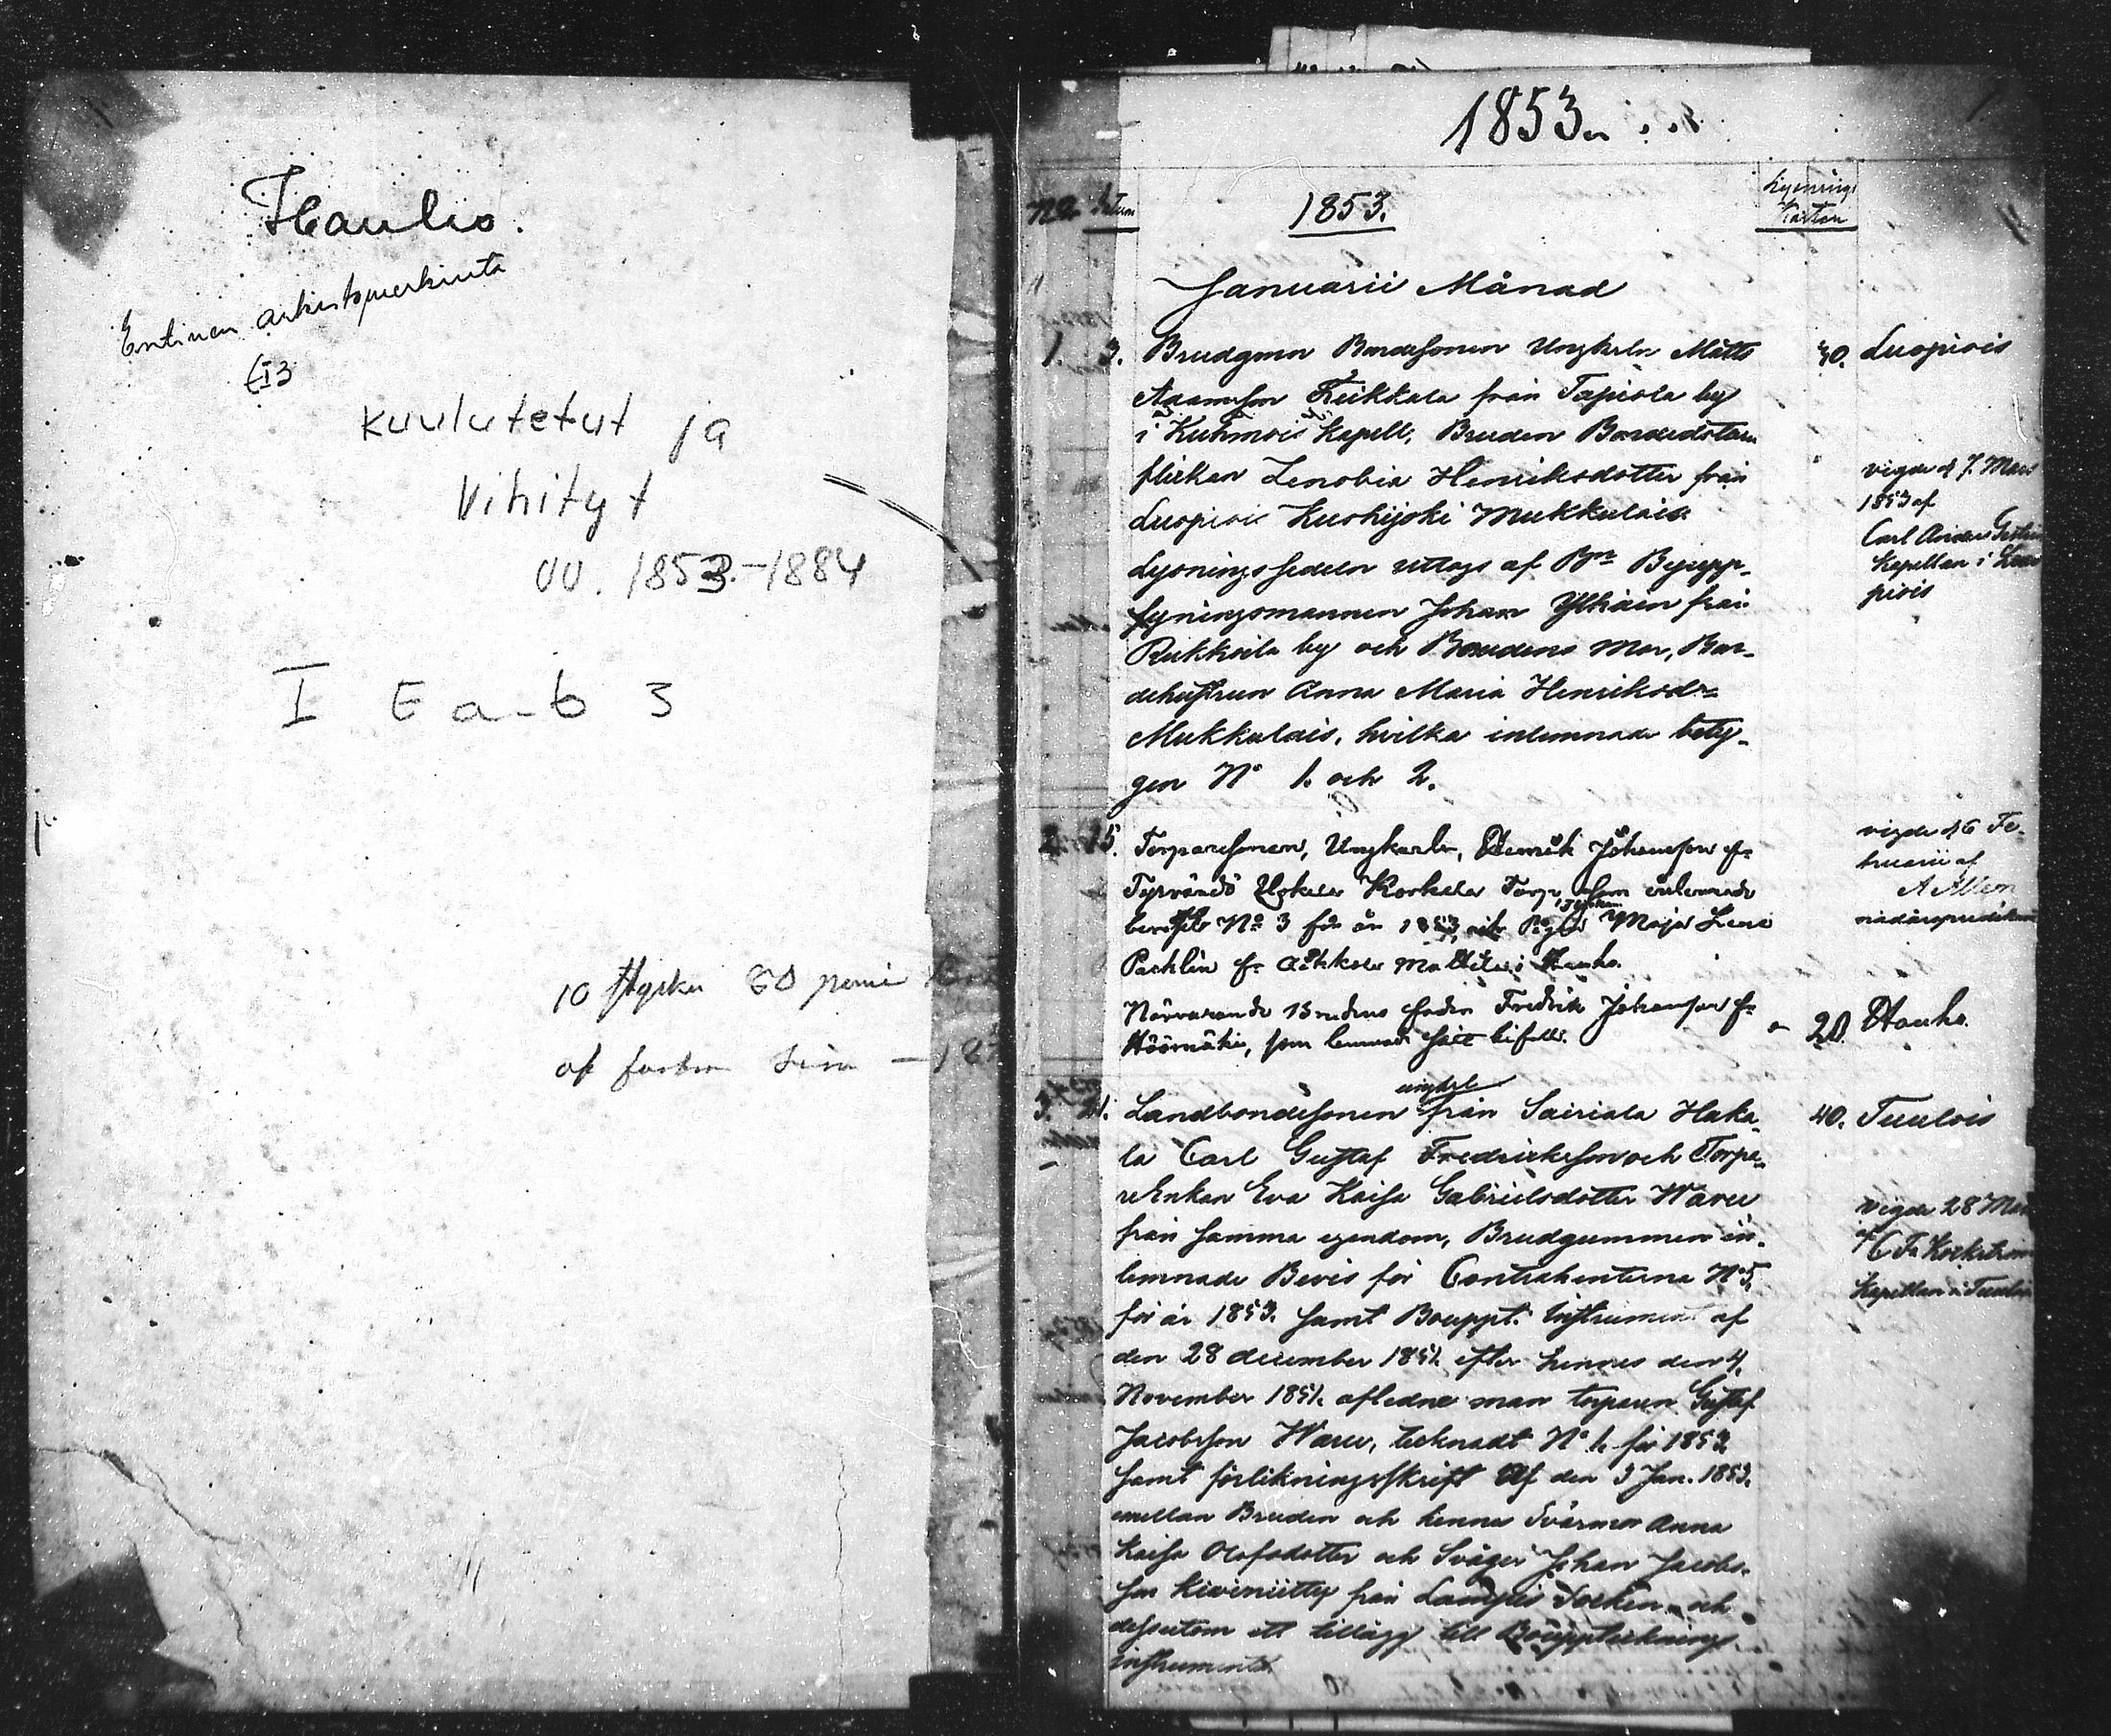 Hauho.
Entinen arkistomerkintä
EI3
Kuulutetut ja
Vihityt
vv. 1853-1884
I Ea-b 3
10 stycken 80 penni
af
1853
No Datum
1853.
Lysnings
Karton
Januarii Månad
1. 3. Brudgumn Bondesonen Ungkarln Matts
Adamsson Feikkala från Tapiola by
i Kuhmois Kapell, Bruden Bondedotren
flickan Zenobia Henriksdotter från
Luopiois Kuohijoki Mukkulais
Lysningssedeln uttogs af Bm Byupp-
syningsmannen Johan från
by och Brudens Mor, Bon-
dehustrun Anna Maria Henriksdr
Mukkulais, hvilka inlemnade bety-
gen No 1. och 2.
40. Luopiois
vigde d 7. Mars
1853 af
Carl
Kapellan i Luo
piois
2. 15. Torparesonen, Ungkarln, Henrik Johansson fr
Tyrväntö Korkela Torp som inlemnade
No 3 för år 1853, och Pigan Maja Lena
fr i Hauho.
Närvarande Brudens fader Fredrik Johansson fr
som lemnade sitt bifall.
vigde d 6 Fe-
bruarii af
A
20 Hauho.
3. 21. Landbondesonen ungkrl från Sairiala Haka-
la Carl Gustaf Fredricksson och Torpa-
reEnkan Eva Kaisa Gabrielsdotter Waru
från samma egendom, Brudgummen in-
lemnade Bevis för Contrahenterna No 5,
för år 1853. samt Bouppt. Instrument af
den 28 december 1851. efter hennes den 4.
November 1851. aflednе man torparen Gustaf
Jacobsson Waru, tecknadt No 1. för 1853
samt förlikningsskrift af den 3 Jan. 1853.
emellan Bruden och hennes Svärmor Anna
Kaisa Olofsdotter och Svåger Johan Jacobs-
son Kiviniitty från Lampis Socken och
dessutom ett tillägg till Boupptecknings-
instrumentet.
40. Tuulois
vigde 28 Mars
af
Kapellan i Tuulois